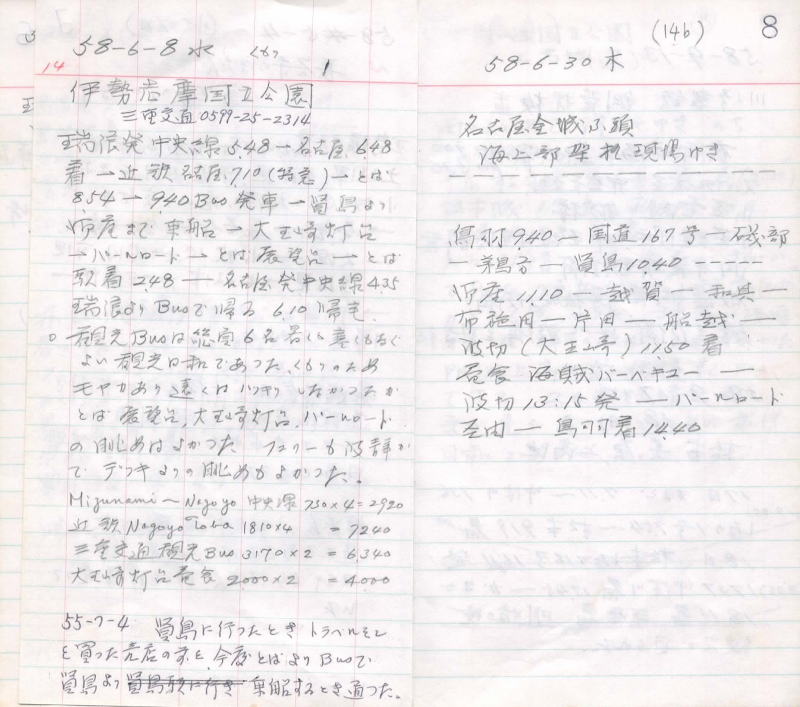 58-6-8 水 くもり
14
1
伊勢志摩国立公園
三重交通 0599-25-2314
瑞浪発 中央線 5.48 → 名古屋 6.48
着 → 近鉄名古屋 7.10 (特急) → とば
8.54 → 9.40 Bus 発車 → 賢島より
御座まで乗船 → 大王崎灯台
→ パールロード → とば展望台 → とば
駅着 2.48 — 名古屋発中央線 4.35
瑞浪より Busで帰る 6.10 帰宅.
○ 観光Busは総員6名暑くも寒くもなく
よい観光日和であつた、くもりのため
モヤがあり遠くはハツキリしなかつたが
とば展望台、大王崎灯台、パールロード
の眺めはよかつた フエリーも波静か
で デツキよりの眺めもよかつた。
Mizunami〜Nagoyo 中央線 730×4=2920
近鉄 Nagoyo Toba 1810×4 = 7240
三重交通 観光Bus 3170×2 = 6,340
大王崎灯台昼食 2,000×2 = 4,000
55-7-4 賢島に行つたとき トラベルミン
を買つた売店の前を 今度とばより Busで
賢島より 賢島駅に行き 乗船するとき通つた。
(14b)
8
58-6-30 木
名古屋金城ふ頭
海上部架橋現場ゆき
鳥羽 9.40 — 国道167号 — 磯部
— 鵜方 — 賢島 10.40 -----
御座 11.10 — 越賀 — 和具 —
布施田 — 片田 — 船越 —
波切 (大王崎) 11.50 着
昼食 海賊バーベキユー —
波切 13:15 発 — パールロード
至由 — 鳥羽着 14.40